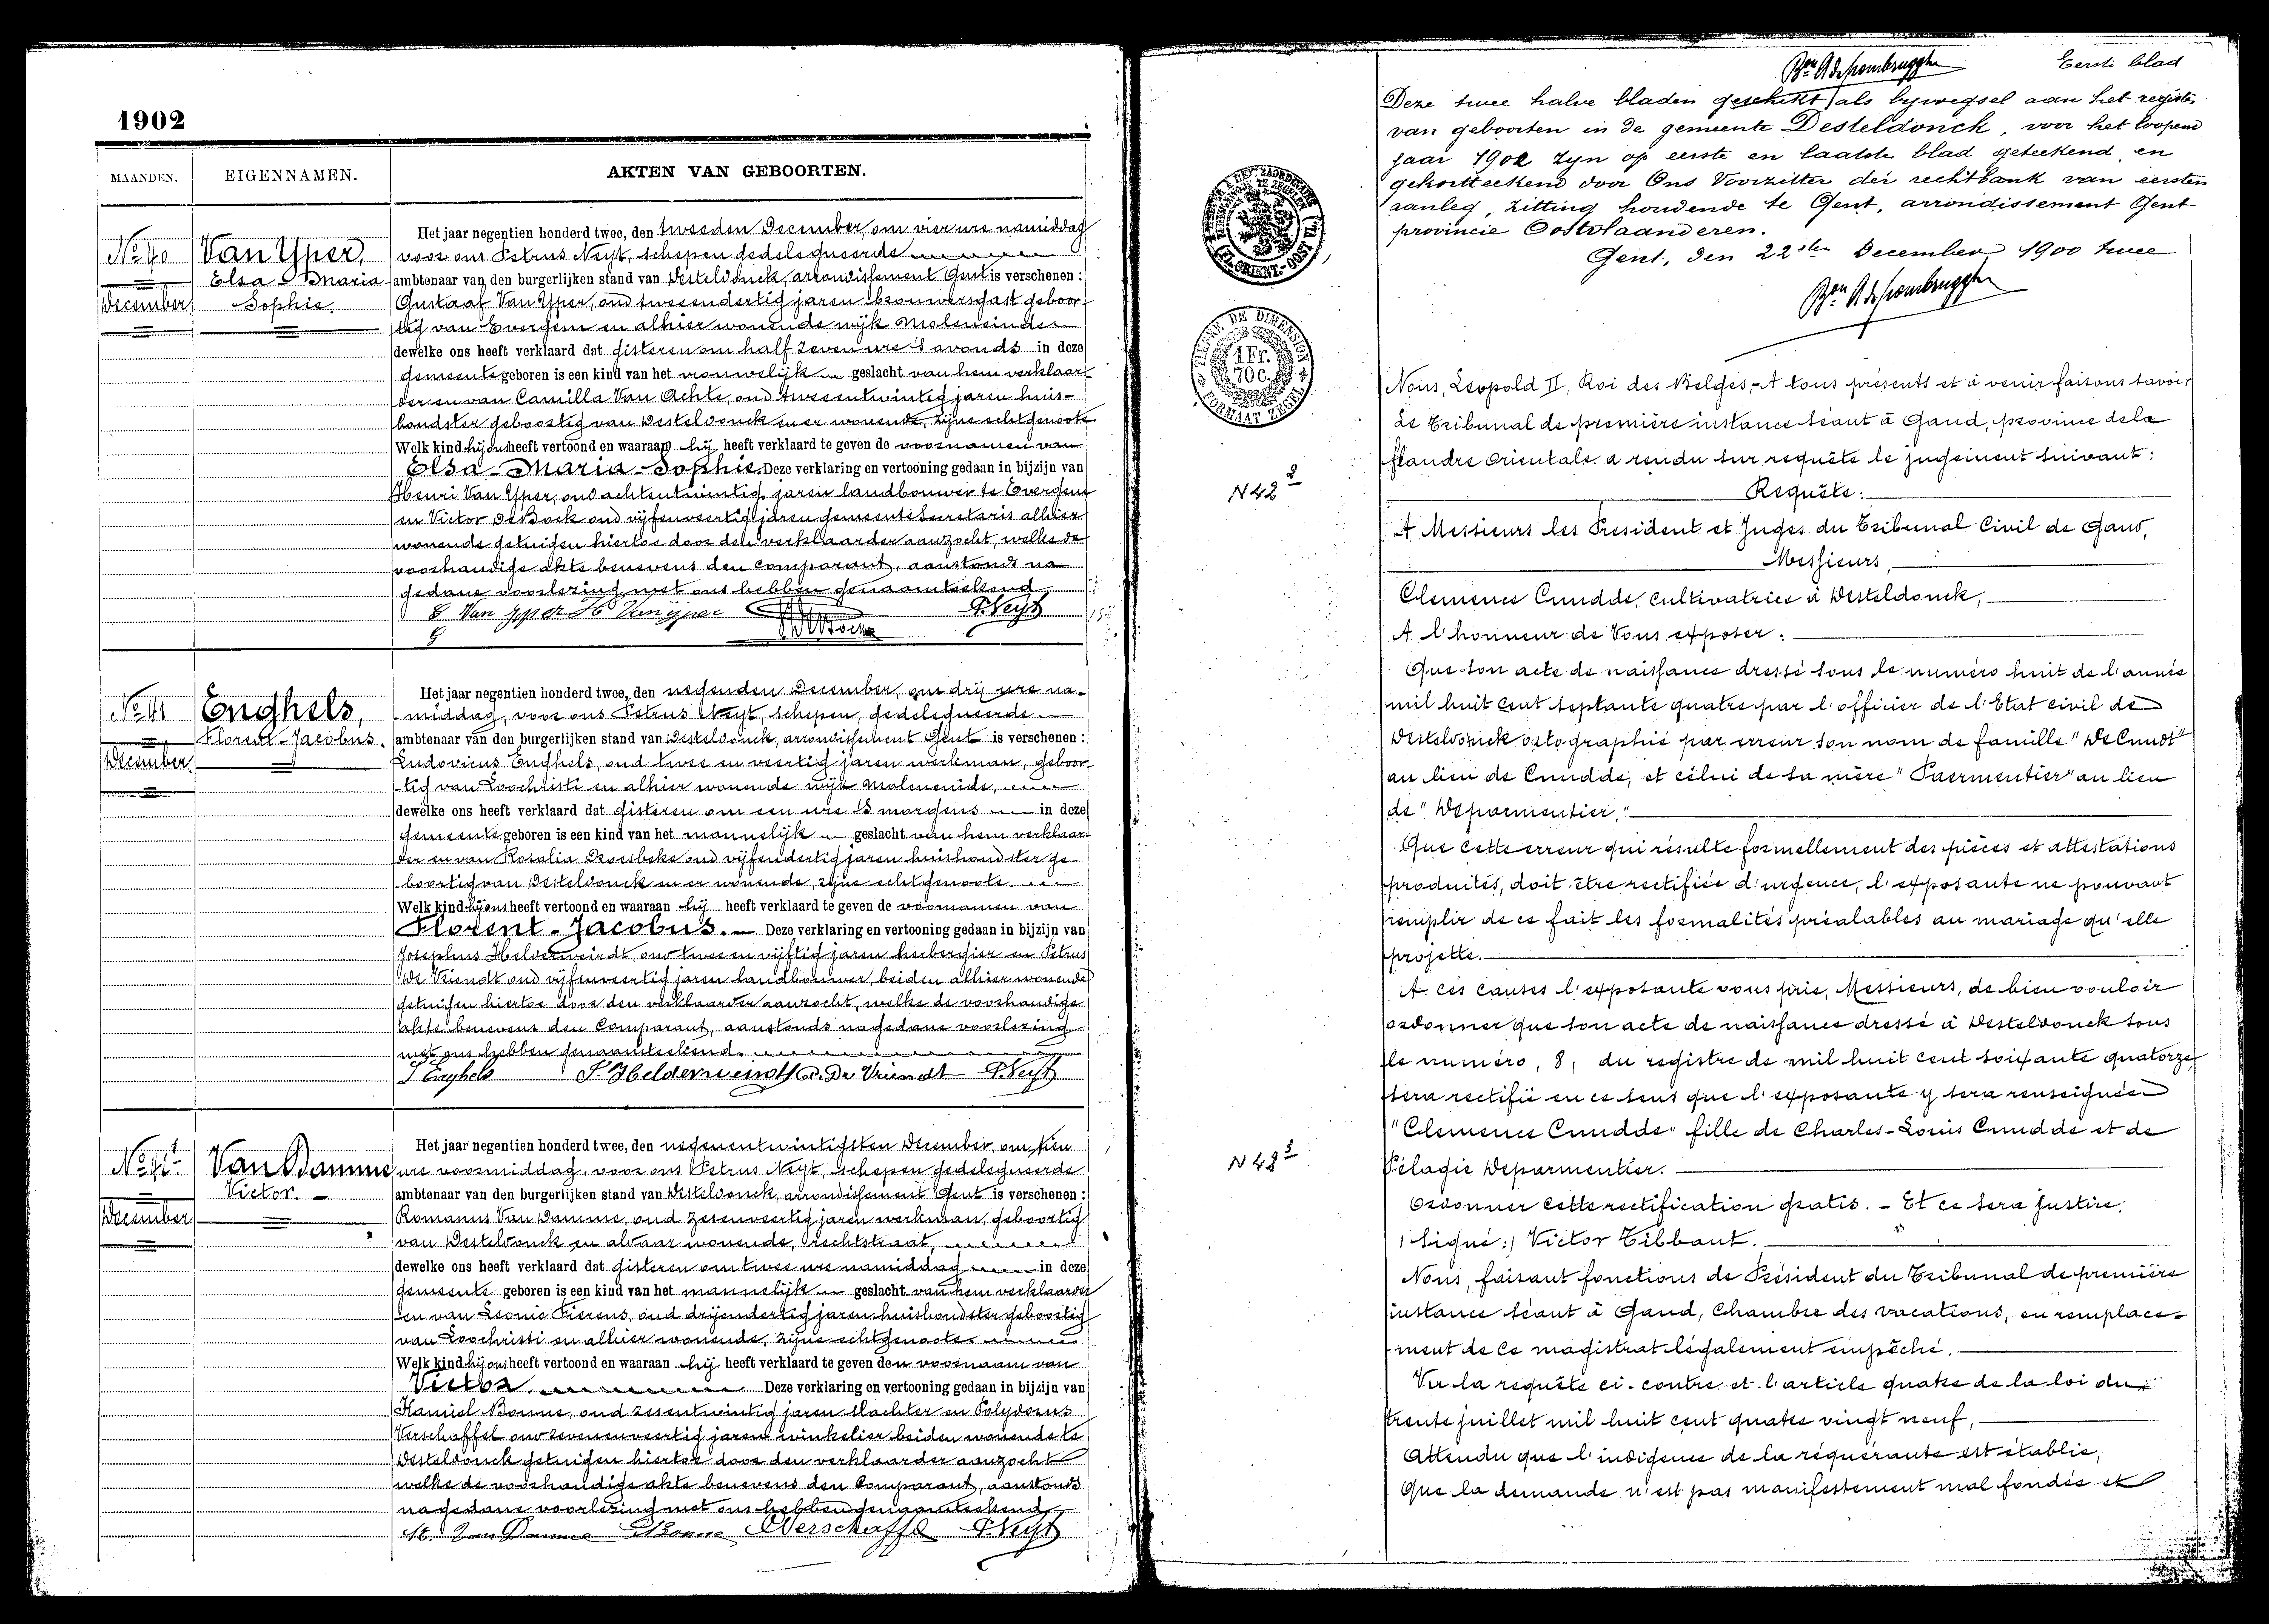 1902
MAANDEN.
EIGENNAMEN.
AKTEN VAN GEBOORTEN.
No 40
December
Van Yper,
Elsa Maria
Sophie.
Het jaar negentien honderd twee, den tweeden December, om vier ure namiddag
voor ons Petrus Neyt, schepen gedelegueerde
ambtenaar van den burgerlijken stand van Desteldonck, arrondissement Gent is verschenen :
Gustaaf Van Yper, oud tweeendertig jaren brouwersgast geboor-
tig van Evergem en alhier wonende wijk Moleneinde
dewelke ons heeft verklaard dat gisteren om half zeven ure 's avonds in deze
gemeente geboren is een kind van het vrouwelijk geslacht van hem verklaar-
der en van Camilla Van Achte, oud tweeentwintig jaren huis-
houdster geboortig van Desteldonck en er wonende, zijne echtgenoote
Welk kind hij ons heeft vertoond en waaraan hij heeft verklaard te geven de voornamen van
Elsa-Maria-Sophie. Deze verklaring en vertooning gedaan in bijzijn van
Henri Van Yper, oud achtentwintig jaren landbouwer te Evergem
en Victor De Bock oud vijfenveertig jaren gemeente secretaris alhier
wonende getuigen hiertoe door den verklaarder aanzocht, welke de
voorhandige akte benevens den comparant, aanstonds na
gedane voorlezing met ons hebben genaamteekend
G Van Yper H Vanyper P. Neyt
No 41
December
Enghels,
Florent-Jacobus.
Het jaar negentien honderd twee, den negenden December, om drij ure na-
middag, voor ons Petrus Neyt, schepen, gedelegueerde
ambtenaar van den burgerlijken stand van Desteldonck, arrondissement Gent is verschenen :
Ludovicus Enghels, oud twee en veertig jaren werkman, geboor-
tig van Loochristi en alhier wonende wijk Moleneinde,
dewelke ons heeft verklaard dat gisteren om een ure 's morgens in deze
gemeente geboren is een kind van het mannelijk geslacht van hem verklaar-
der en van Rosalia Droesbeke oud vijfendertig jaren huishoudster ge-
boortig van Desteldonck en er wonende, zijne echtgenoote
Welk kind hij ons heeft vertoond en waaraan hij heeft verklaard te geven de voornamen van
Florent-Jacobus. Deze verklaring en vertooning gedaan in bijzijn van
Josephus Helderweirdt, oud twee en vijftig jaren herbergier en Petrus
De Vriendt oud vijfenveertig jaren landbouwer, beiden alhier wonende
getuigen hiertoe door den verklaarder aanzocht, welke de voorhandige
akte benevens den Comparant, aanstonds nagedane voorlezing
met ons hebben genaamteekend.
L Enghels J. Helderweirdt P. De Vriendt P. Neyt
December
Van Damme
Victor.
Het jaar negentien honderd twee, den negenentwintigsten December, om tien
ure voormiddag, voor ons Petrus Neyt, schepen gedelegueerde
ambtenaar van den burgerlijken stand van Desteldonck, arrondissement Gent is verschenen :
Romanus Van Damme, oud zesenveertig jaren werkman, geboortig
van Desteldonck en aldaar wonende, rechtstraat,
dewelke ons heeft verklaard dat gisteren om twee ure namiddag in deze
gemeente geboren is een kind van het mannelijk geslacht van hem verklaarder
en van Leonie Fierens, oud drijendertig jaren huishoudster geboortig
van Loochristi en alhier wonende, zijne echtgenoote
Welk kind hij ons heeft vertoond en waaraan hij heeft verklaard te geven den voornaam van
Victor. Deze verklaring en vertooning gedaan in bijzijn van
Kamiel Bonne, oud zesentwintig jaren slachter en Polydorus
Verschaffel oud zevenenveertig jaren winkelier beiden wonende te
Desteldonck getuigen hiertoe door den verklaarder aanzocht
welke de voorhandige akte benevens den Comparant, aanstonds
nagedane voorlezing met ons hebben genaamteekend
Van Damme Bonne Verschaffel P. Neyt
Eerste blad
Deze twee halve bladen geschikt als bijvoegsel aan het register
van geboorten in de gemeente Desteldonck, voor het loopend
jaar 1902 zyn op eerste en laatste blad geteekend en
gekortteekend door Ons Voorzitter der rechtbank van eersten
aanleg, zitting houdende te Gent, arrondissement Gent
provincie Oostvlaanderen.
Gent, den 22sten December 1900 twee
TIMBRE DE DIMENSION
1 Fr.
70 C.
FORMAAT ZEGEL
Nous, Leopold II, Roi des Belges, A tous présents et à venir faisons savoir
Le Tribunal de première instance séant à Gand, province de la
flandre Orientale a rendu sur requête le jugement suivant :
N 42 2
Requête :
A Messieurs les President et Juges du Tribunal Civil de Gand,
Messieurs,
Clemence Cnudde, cultivatrice à Desteldonck,
A l'honneur de Vous exposer :
Que son acte de naissance dressé sous le numéro huit de l'année
mil huit cent septante quatre par l'officier de l'Etat civil de
Desteldonck ortographié par erreur son nom de famille "De Cnudt"
au lieu de Cnudde, et célui de sa mère "Paermentier" au lieu
de "Deparmentier,"
Que cette erreur qui résulte formellement des pièces et attestations
produites, doit être rectifiée d'urgence, l'exposante ne pouvant
remplir de ce fait les formalités préalables au mariage qu'elle
projette.
A ces causes l'exposante vous prie, Messieurs, de bien vouloir
ordonner que son acte de naissance dressé à Desteldonck sous
le numéro, 8, du registre de mil huit cent soixante quatorze,
sera rectifié en ce sens que l'exposante y sera renseignée
"Clemence Cnudde" fille de Charles-Louis Cnudde et de
N 43 3
Pélagie Deparmentier.
Ordonner cette rectification gratis. - Et ce sera justice.
(Signé :) Victor Tibbaut.
Nous, faisant fonctions de Président du Tribunal de première
instance séant à Gand, Chambre des vacations, en remplace-
ment de ce magistrat légalement empêché.
Vu la requête ci-contre et l'article quatre de la loi du
trente juillet mil huit cent quatre vingt neuf,
Attendu que l'indigence de la réquérante est établie,
Que la demande n'est pas manifestement mal fondée et